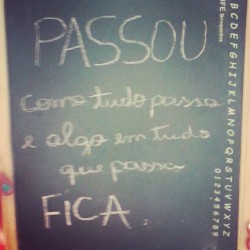 PASSOU
Como tudo passa
e algo em tudo
que passa
FICA.
ABCDEFGHIJKLMNOPQRSTUVWXYZ
1234567890